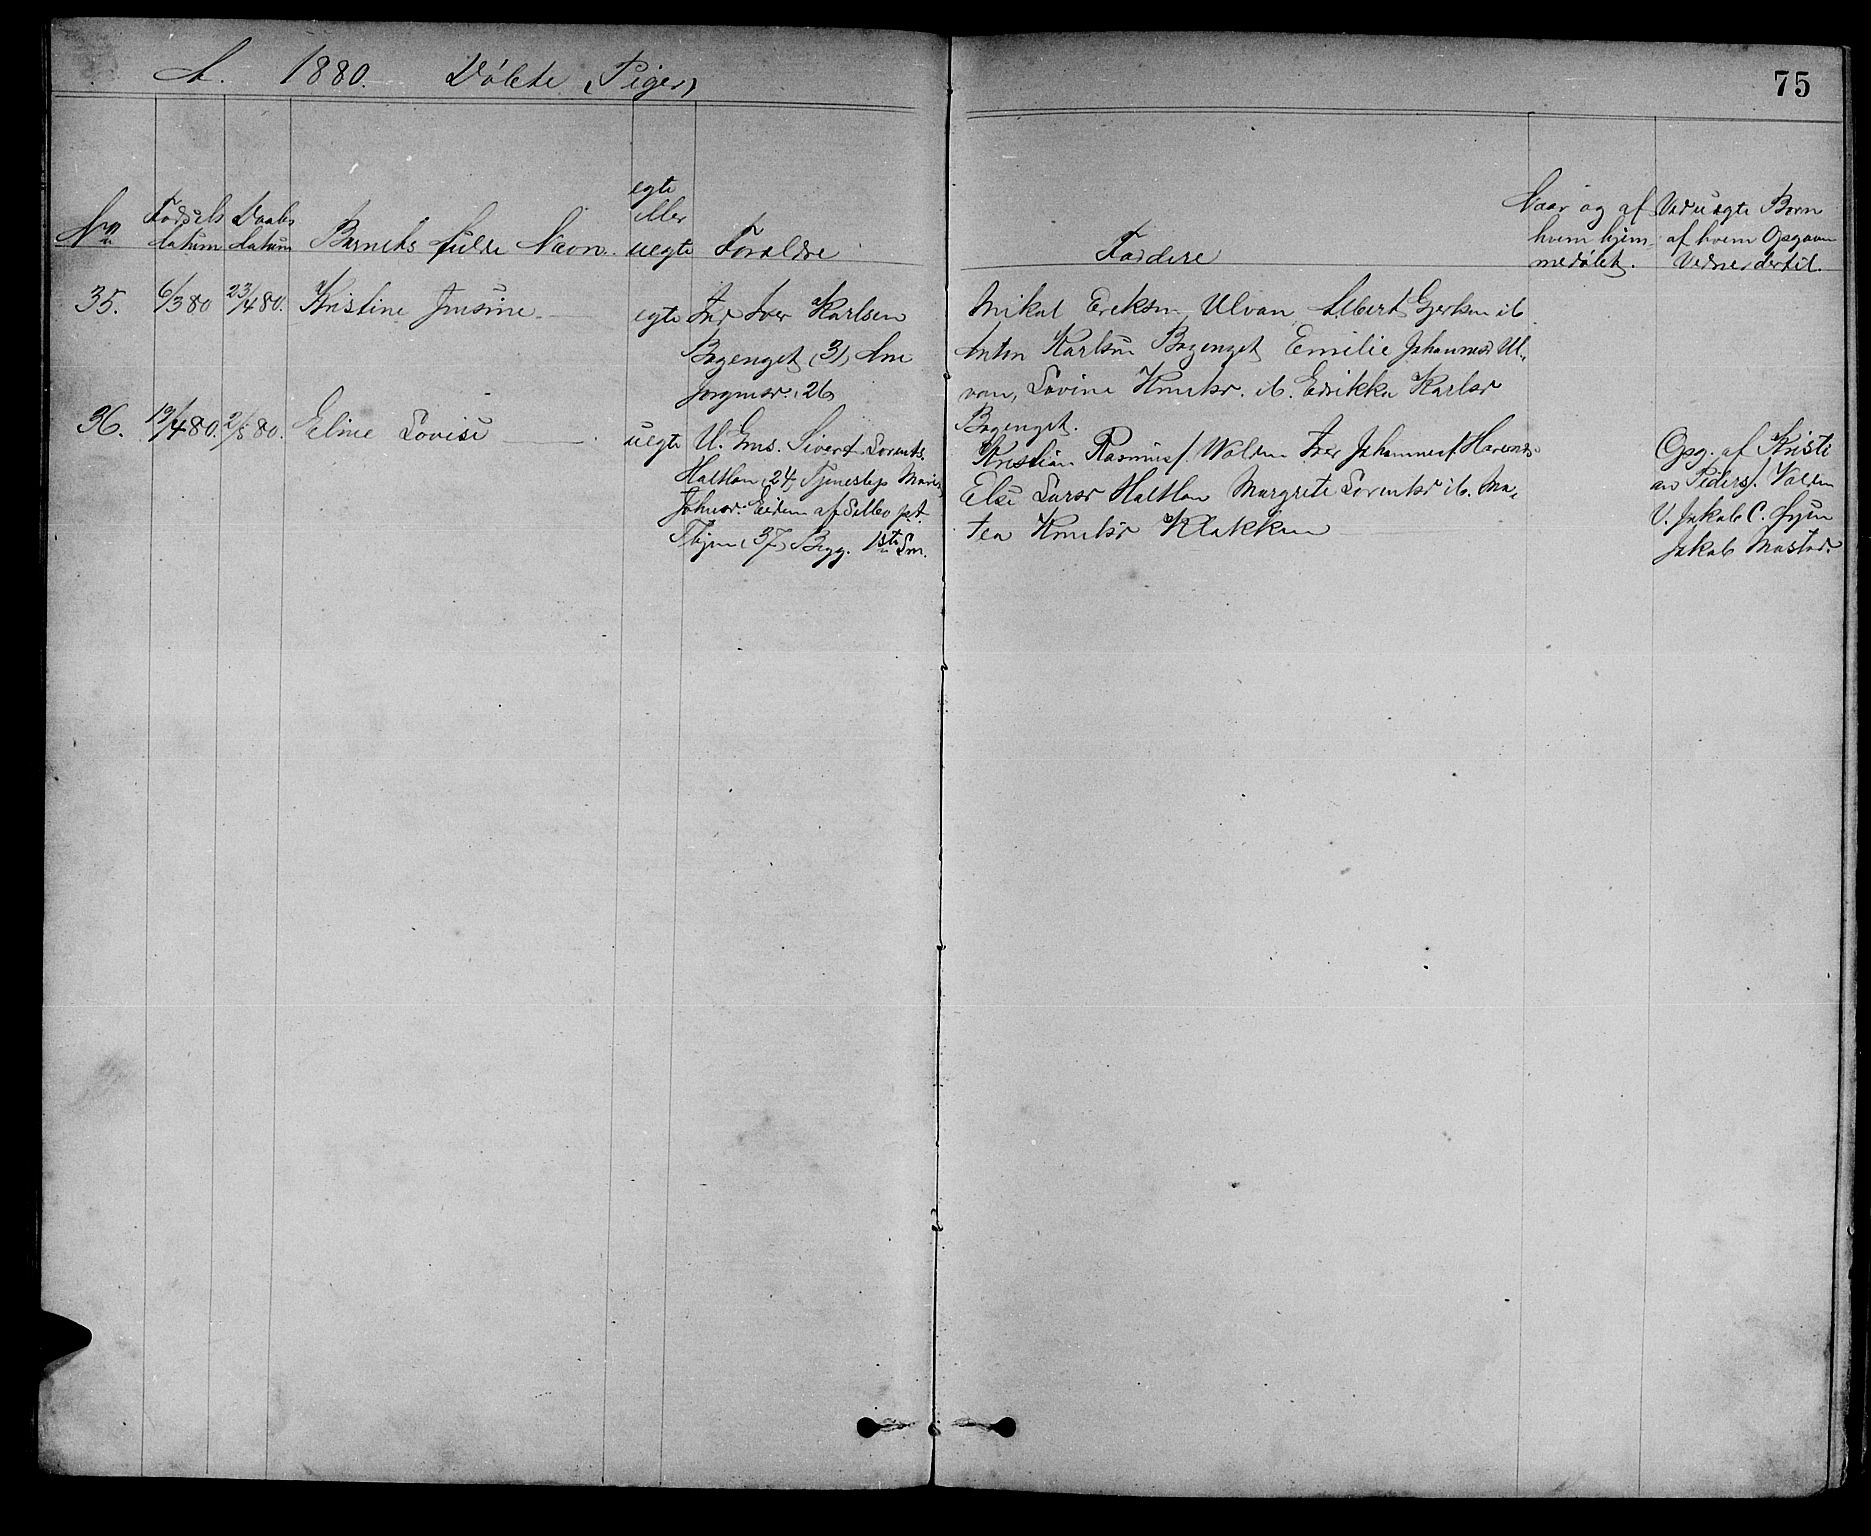 A. 1880. Døbte (Piger)
75
No
Fødsels
datum
Daabs
datum
Barnets fulde Navn.
egte
eller
uegte
Forældre
Faddere
Naar og af
hvem hjem-
medøbt.
Ved uegte Børn
af hvem Opgaven
Vidner dertil.
35. 6/3 80 23/4 80. Kristine Jensine egte Ind. Iver Karlsen
Bagenget (31) Ane
Jørgensdr. 26
Mikal Eriksen, Ulvan, Albert Gjertsen ib
Anton Karlsen Bagenget Emilie Johannesd Ul-
van, Lovine Knutsdr. ib. Erikka Karlsdr
Bagenget.
36. 19/4 80. 2/5 80. Eline Lovise uegte U. Gms. Sivert Lorents.
Haltlan (24) Tjenestep Marit
Johnsdr. Eidem af Selbo pst.
Thjem (37) Begg. 1ste Lm.
Kristian Rasmus/. Walden Iver Johannes/
Else Larsdr Haltlan Margrete Lorentsdr ib. Ma-
tea Knutsdr Klakken
Opg. af Kristi
an Peders/. Valden
V. Jakob C.
Jakob Mastad.